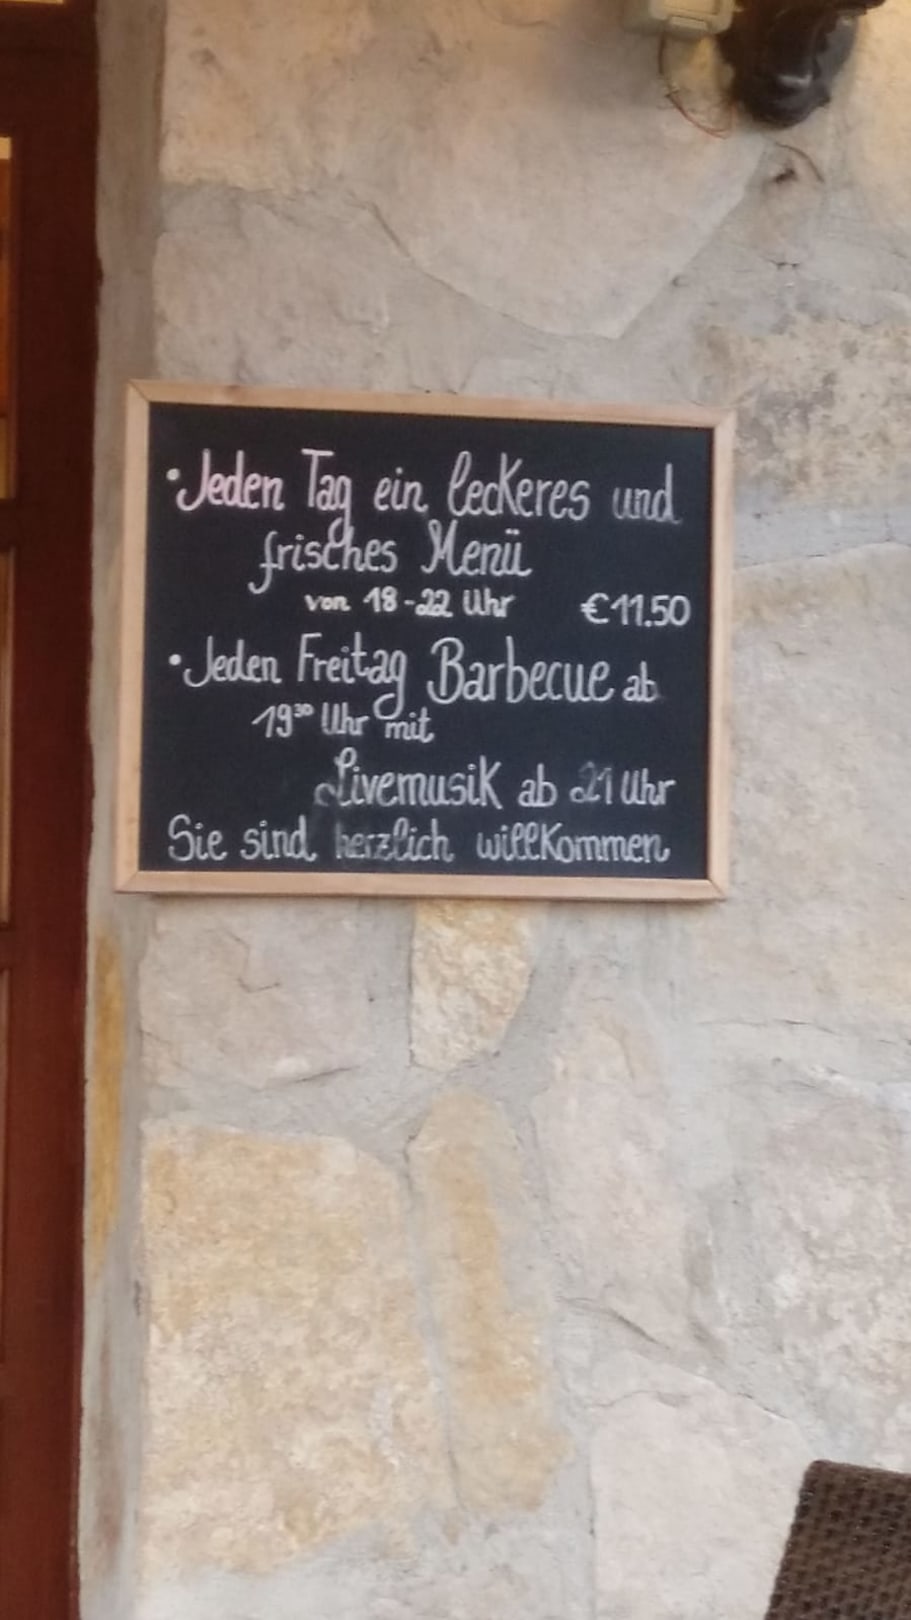 • Jeden Tag ein leckeres und
frisches Menü
von 18-22 Uhr €11.50
• Jeden Freitag Barbecue ab
19³⁰ Uhr mit
Livemusik ab 21 Uhr
Sie sind herzlich willkommen